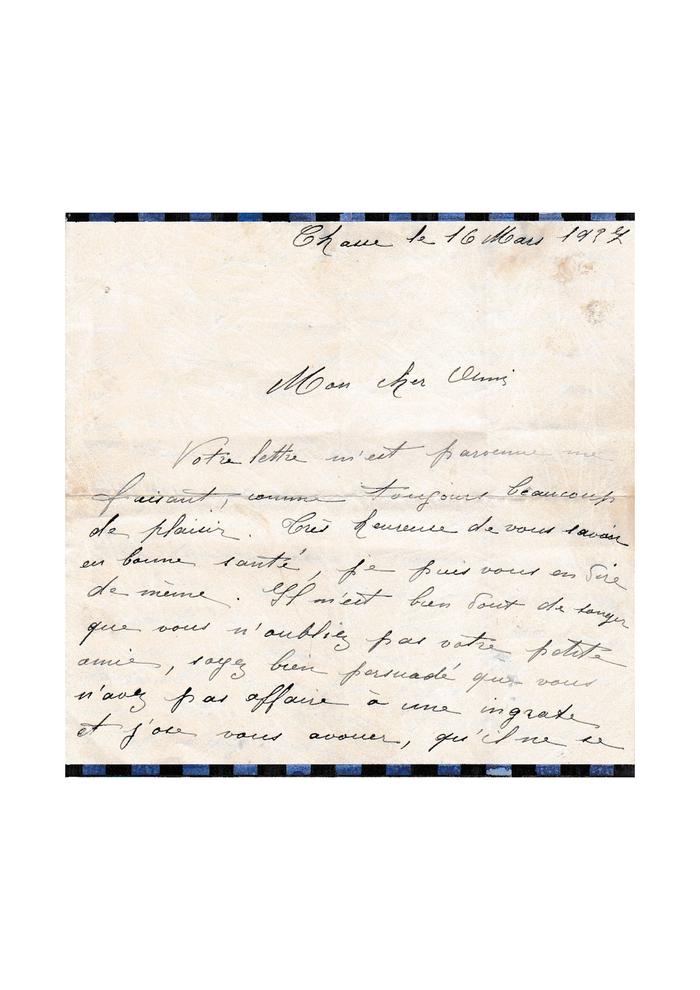 Chasse le 16 Mars 1937
Mon cher Denis
Votre lettre m'est parvenue me
faisant, comme toujours beaucoup
de plaisir. Très heureuse de vous savoir
en bonne santé, je puis vous en dire
de même. Il m'est bien doux de songer
que vous n'oubliez pas votre petite
amie, soyez bien persuadé que vous
n'avez pas affaire à une ingrate
et j'ose vous avouer, qu'il ne se